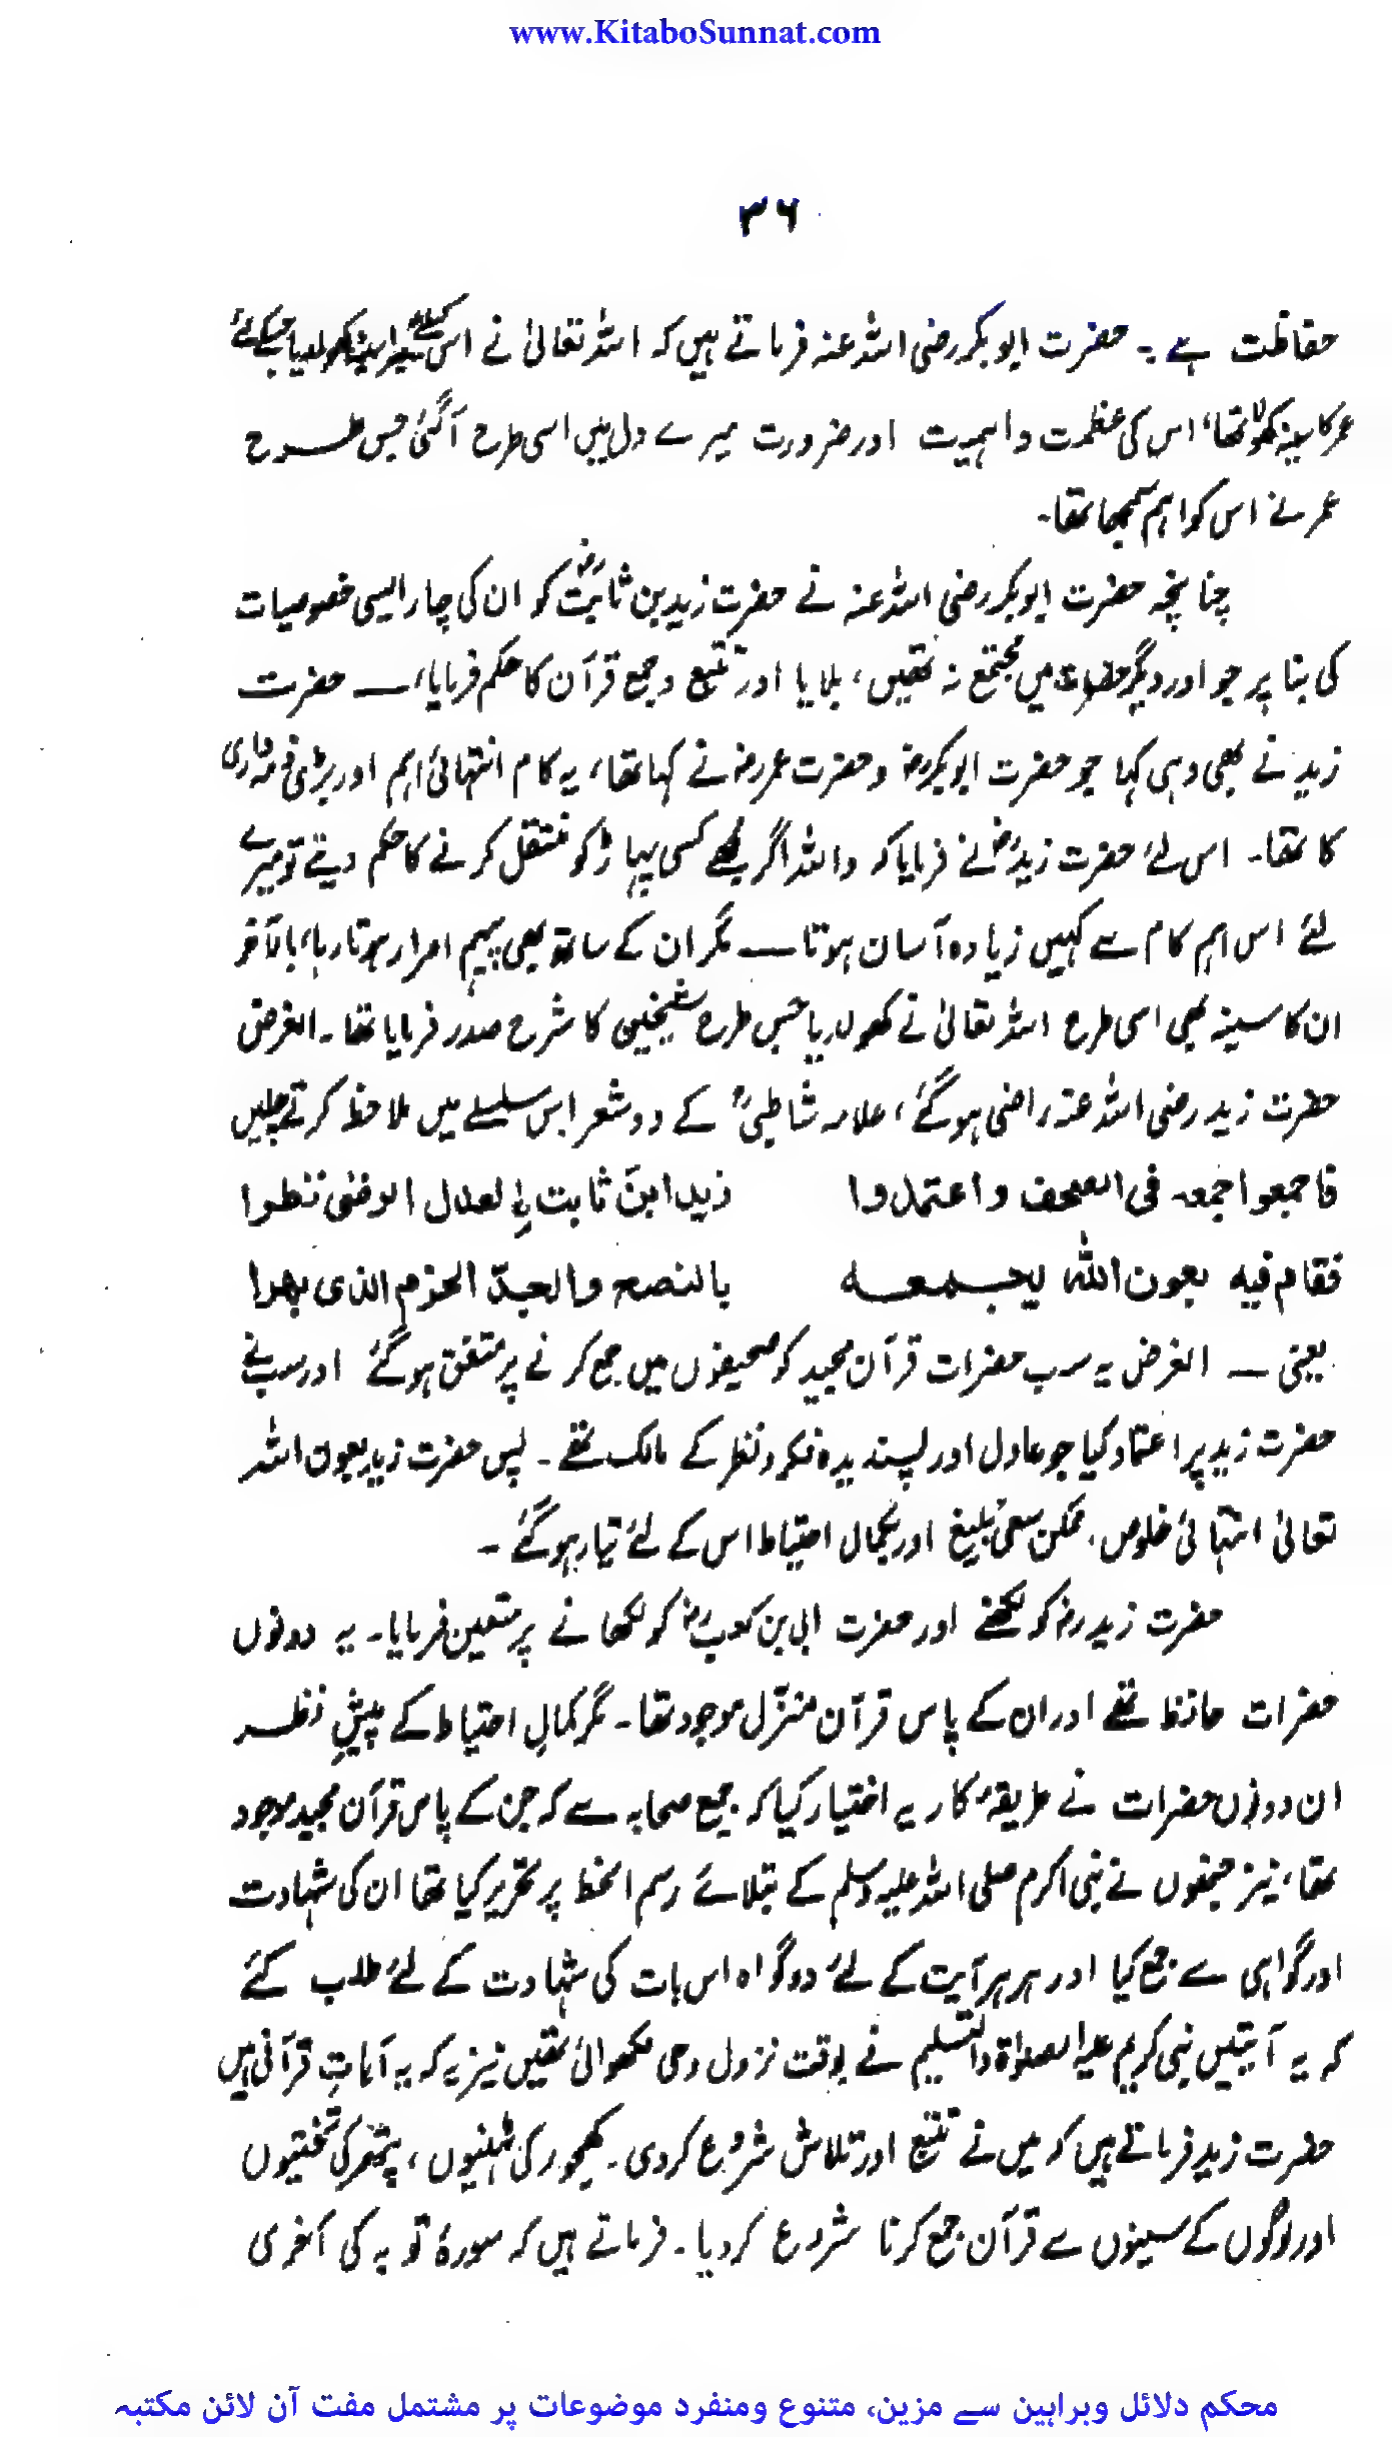 www.KitaboSunnat.com
۳۶
حفاظت ہے۔ حضرت ابو بکر رضی اللہ عنہ فرماتے ہیں کہ اللہ تعالیٰ نے اس کیلئے میرا سینہ کھولدیا جسکے لئے
عمر کا سینہ کھولا تھا، اس کی عظمت و اہمیت اور ضرورت میرے دل میں اسی طرح آگئی جس طرح
عمر نے اس کو اہم سمجھا تھا۔
چنانچہ حضرت ابوبکر رضی اللہ عنہ نے حضرت زید بن ثابتؓ کو ان کی چار ایسی خصوصیات
کی بنا پر جو اور دیگر حضرات میں مجتمع نہ تھیں، بلایا اور تتبع و جمع قرآن کا حکم فرمایا، — حضرت
زید نے بھی وہی کہا جو حضرت ابوبکرؓ و حضرت عمرؓ نے کہا تھا، یہ کام انتہائی اہم اور بڑی ذمہ داری
کا تھا۔ اس لئے حضرت زیدؓ نے فرمایا کہ واللہ اگر مجھے کسی پہاڑ کو منتقل کرنے کا حکم دیتے تو میرے
لئے اس اہم کام سے کہیں زیادہ آسان ہوتا — مگر ان کے ساتھ بھی پیہم اصرار ہوتا رہا، بالآخر
ان کا سینہ بھی اسی طرح اللہ تعالیٰ نے کھولدیا جس طرح شیخین کا شرح صدر فرمایا تھا۔ الغرض
حضرت زید رضی اللہ عنہ راضی ہوگئے، علامہ شاطبیؒ کے دو شعر اس سلسلے میں ملاحظہ کرتے چلیں
فاجمعوا جمعہ فی الصحف واعتمدوا زید ابن ثابت لِ لعدل الرضی نظرا
فقام فیہ بعون اللہ یجمعہ بالنصح والجدّ الحزم الذی بھرا
یعنی — الغرض یہ سب حضرات قرآن مجید کو صحیفوں میں جمع کرنے پر متفق ہوگئے اور سب نے
حضرت زید پر اعتماد کیا جو عادل اور پسندیدہ فکر و نظر کے مالک تھے۔ پس حضرت زید بعون اللہ
تعالیٰ انتہائی خلوص، ممکن سعیٔ بلیغ اور بکمال احتیاط اس کے لئے تیار ہوگئے۔
حضرت زیدؓ کو لکھنے اور حضرت ابی بن کعبؓ کو لکھانے پر متعین فرمایا۔ یہ دونوں
حضرات حافظ تھے اور ان کے پاس قرآن منزّل موجود تھا۔ مگر کمالِ احتیاط کے پیشِ نظر
ان دونوں حضرات نے طریقۂ کار یہ اختیار کیا کہ جمیع صحابہ سے کہ جن کے پاس قرآن مجید موجود
تھا، نیز جنھوں نے نبی اکرم صلی اللہ علیہ وسلم کے بتلائے رسم الخط پر تحریر کیا تھا ان کی شہادت
اور گواہی سے جمع کیا اور ہر ہر آیت کے لئے دو گواہ اس بات کی شہادت کے لئے طلب کئے
کہ یہ آیتیں نبی کریم علیہ الصلوٰۃ والتسلیم نے بوقت نزول وحی لکھوائی تھیں نیز یہ کہ یہ آیاتِ قرآنی ہیں
حضرت زید فرماتے ہیں کہ میں نے تتبع اور تلاش شروع کر دی۔ کھجور کی ٹہنیوں، پتھر کی تختیوں
اور لوگوں کے سینوں سے قرآن جمع کرنا شروع کر دیا۔ فرماتے ہیں کہ سورۂ توبہ کی آخری
محکم دلائل وبراہین سے مزین، متنوع ومنفرد موضوعات پر مشتمل مفت آن لائن مکتبہ